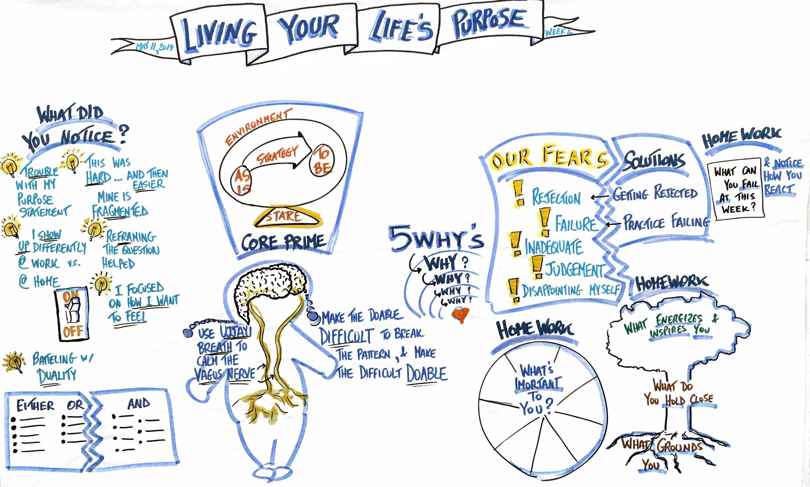 LIVING YOUR LIFE'S PURPOSE
MAY 11, 2019
WEEK 2
WHAT DID
YOU NOTICE?
TROUBLE
WITH MY
PURPOSE
STATEMENT
THIS WAS
HARD... AND THEN
EASIER
MINE IS
FRAGMENTED
I SHOW
UP DIFFERENTLY
@ WORK VS.
@ HOME
REFRAMING
THE QUESTION
HELPED
I FOCUSED
ON HOW I WANT
TO FEEL
ON
OFF
BATELING W/
DUALITY
EITHER OR
AND
ENVIRONMENT
STRATEGY
AS
IS
TO
BE
STAKE
CORE PRIME
USE UJJAYI
BREATH TO
CALM THE
VAGUS NERVE
MAKE THE DOABLE
DIFFICULT TO BREAK
THE PATTERN, & MAKE
THE DIFFICULT DOABLE
5 WHY'S
WHY?
WHY?
WHY?
WHY?
OUR FEARS
REJECTION
FAILURE
INADEQUATE
JUDGEMENT
DISAPPOINTING MYSELF
SOLUTIONS
GETTING REJECTED
PRACTICE FAILING
HOMEWORK
WHAT CAN
YOU FAIL
AT THIS
WEEK?
& NOTICE
HOW YOU
REACT
HOMEWORK
WHAT'S
IMORTANT
TO
YOU?
HOMEWORK
WHAT ENERGIZES &
INSPIRES YOU
WHAT DO
YOU HOLD CLOSE
WHAT GROUNDS
YOU